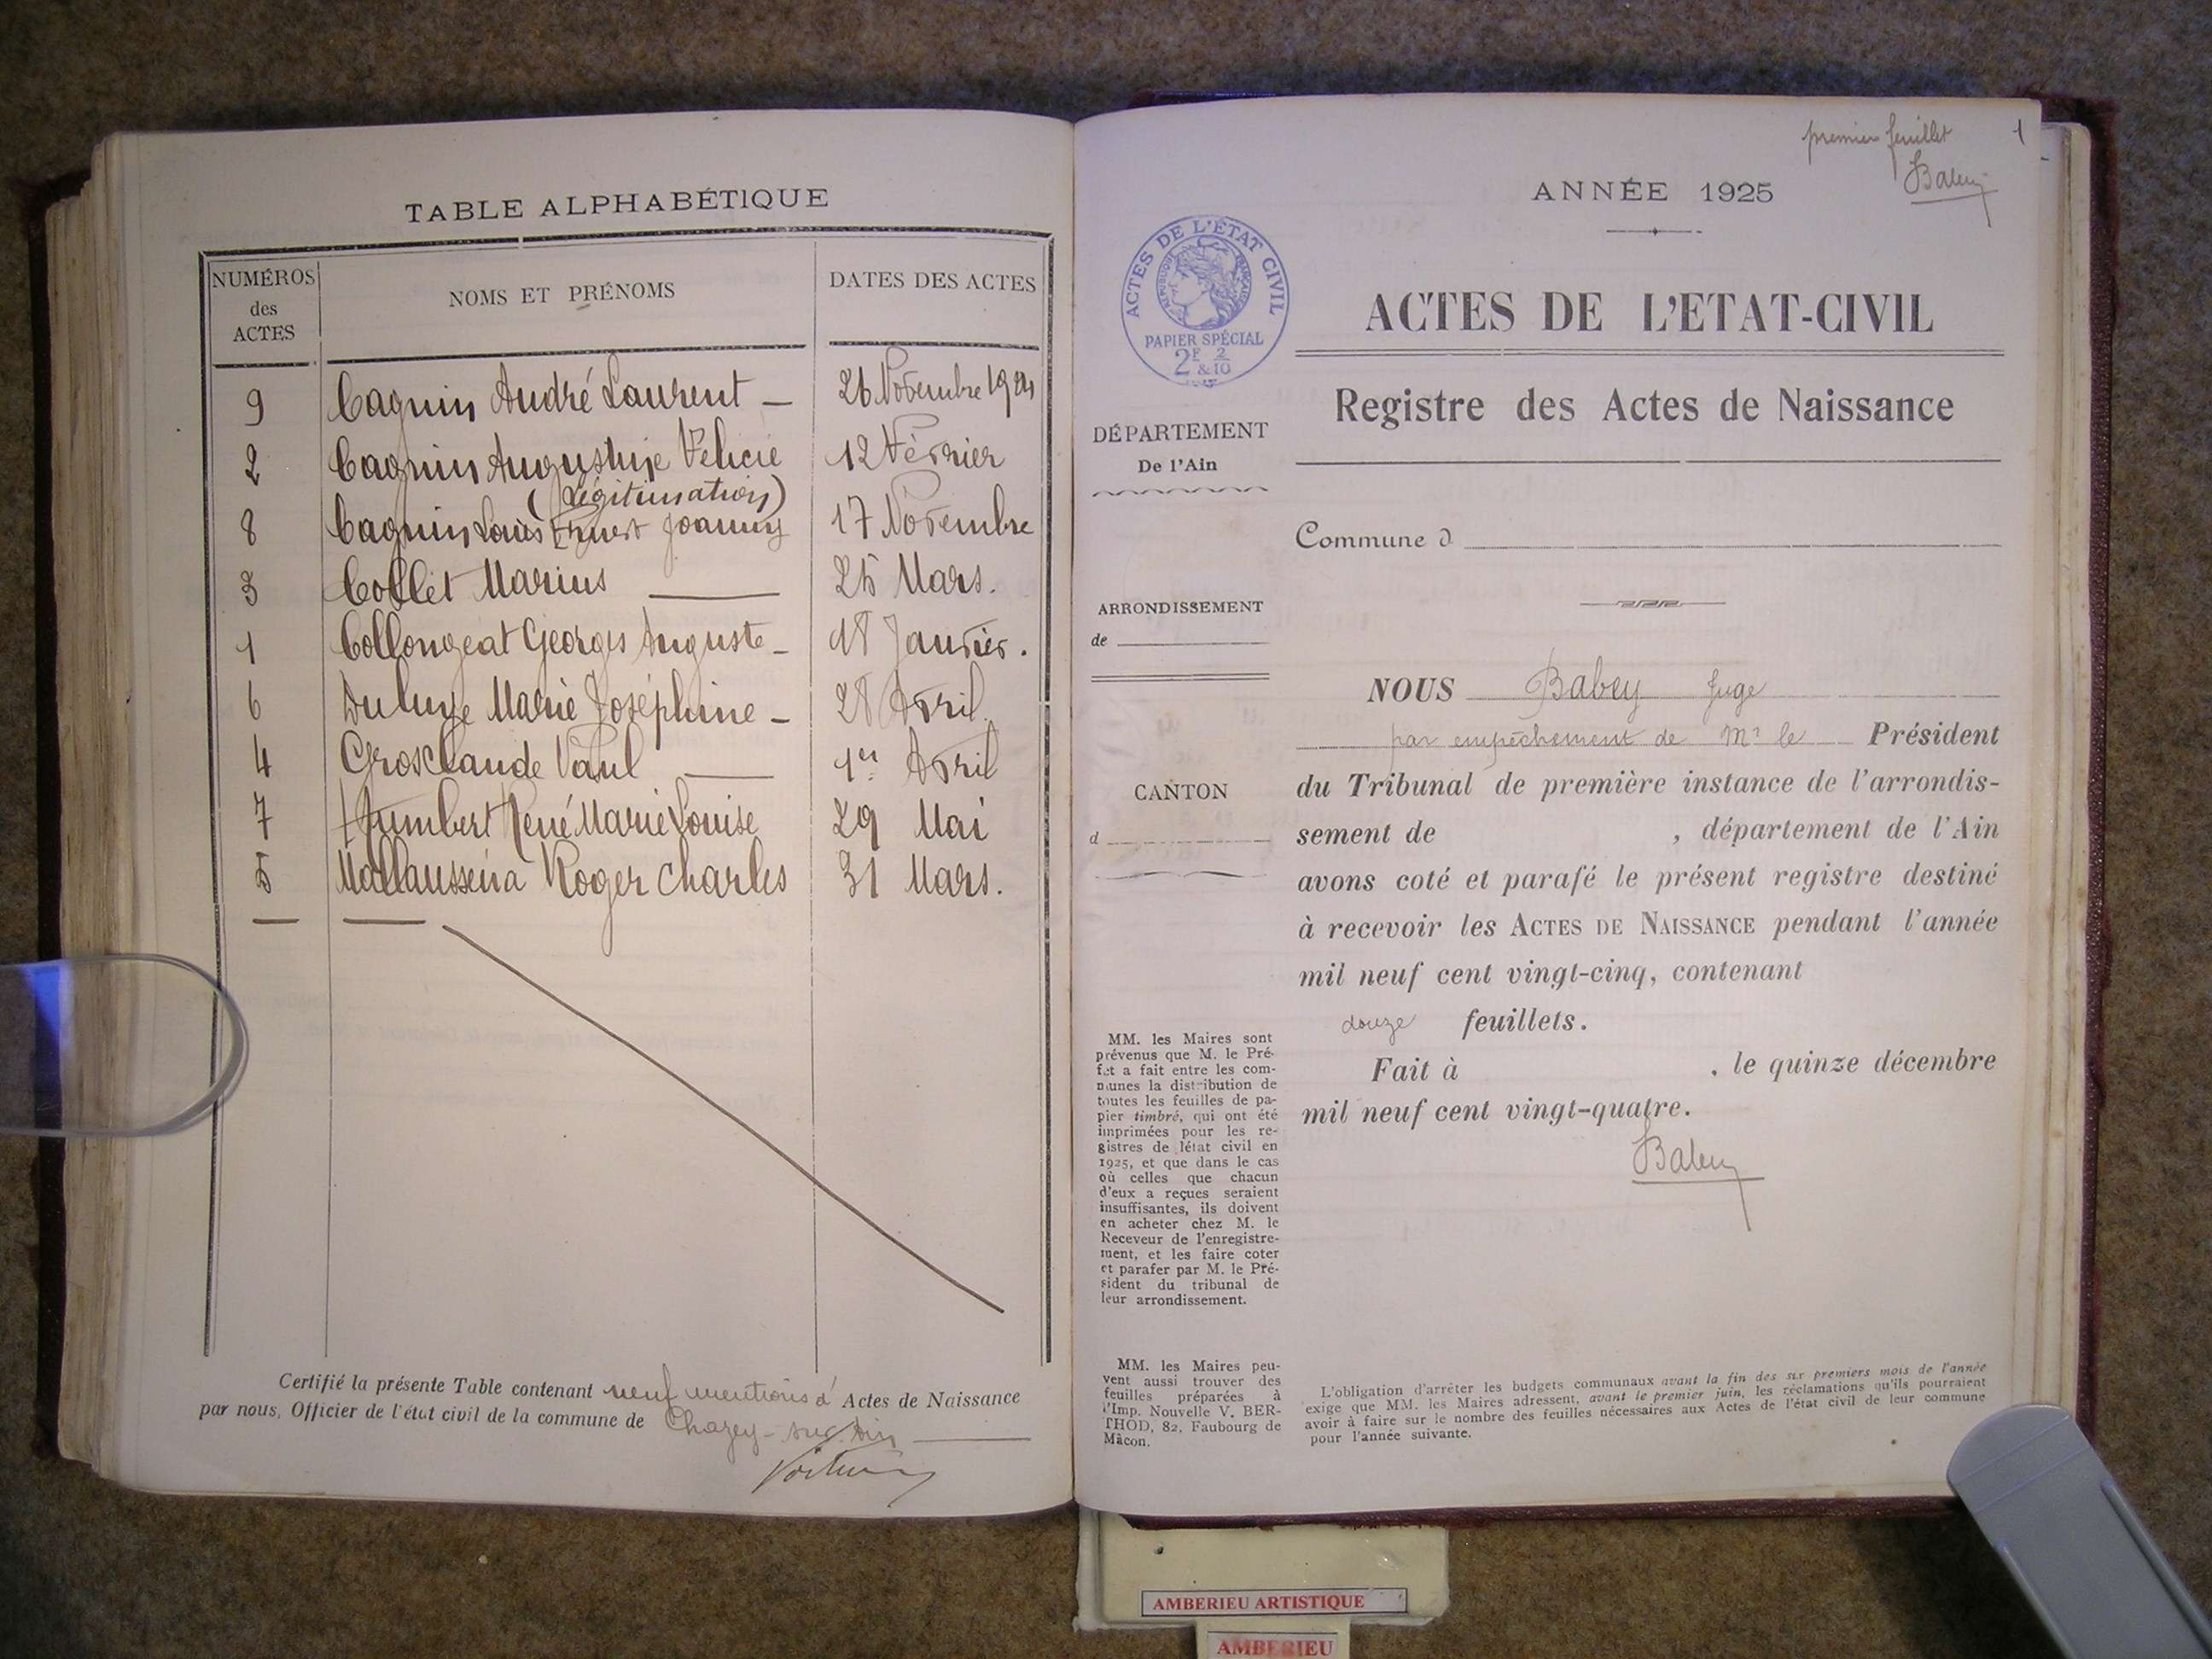 TABLE ALPHABÉTIQUE
NUMÉROS des ACTES NOMS ET PRÉNOMS DATES DES ACTES
9 Cagnin André Laurent — 26 Novembre 1924
2 Cagnin Augustine Félicie 12 Février
(Légitimation)
8 Cagnin Louis Joanny 17 Novembre
3 Collet Marius 25 Mars.
1 Collongeat Georges Auguste — 18 Janvier.
6 Marie Joséphine — 28 Avril
4 Grosclaude Paul 1er Avril
7 Humbert René Marie Louise 29 Mai
5 Mallausséna Roger Charles 31 Mars.
Certifié la présente Table contenant neuf mentions d' Actes de Naissance
par nous, Officier de l'état civil de la commune de Chazey-sur-Ain
premier feuillet 1
Babey
ANNÉE 1925
ACTES DE L'ÉTAT CIVIL
RÉPUBLIQUE FRANÇAISE
PAPIER SPÉCIAL
2F & 2/10
ACTES DE L'ETAT-CIVIL
Registre des Actes de Naissance
DÉPARTEMENT
De l'Ain
Commune d
ARRONDISSEMENT
de
CANTON
d
NOUS Babey Juge
par empêchement de Mr le Président
du Tribunal de première instance de l'arrondis-
sement de , département de l'Ain
avons coté et parafé le présent registre destiné
à recevoir les ACTES DE NAISSANCE pendant l'année
mil neuf cent vingt-cinq, contenant
douze feuillets.
Fait à , le quinze décembre
mil neuf cent vingt-quatre.
Babey
MM. les Maires sont
prévenus que M. le Pré-
fet a fait entre les com-
munes la distribution de
toutes les feuilles de pa-
pier timbré, qui ont été
imprimées pour les re-
gistres de létat civil en
1925, et que dans le cas
où celles que chacun
d'eux a reçues seraient
insuffisantes, ils doivent
en acheter chez M. le
Receveur de l'enregistre-
ment, et les faire coter
et parafer par M. le Pré-
sident du tribunal de
leur arrondissement.
MM. les Maires peu-
vent aussi trouver des
feuilles préparées à
l'Imp. Nouvelle V. BER-
THOD, 82, Faubourg de
Mâcon.
L'obligation d'arrêter les budgets communaux avant la fin des six premiers mois de l'année
exige que MM. les Maires adressent, avant le premier juin, les réclamations qu'ils pourraient
avoir à faire sur le nombre des feuilles nécessaires aux Actes de l'état civil de leur commune
pour l'année suivante.
AMBERIEU ARTISTIQUE
AMBERIEU